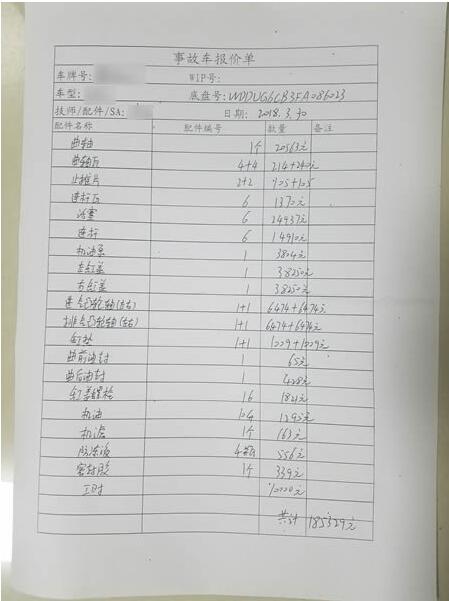 事故车报价单
车牌号: WIP号:
车型: 底盘号: WDDUG6CB3FA086023
技师/配件/SA: 日期: 2018.3.30
配件名称 配件编号 数量 备注
曲轴 1个 20563元
曲轴瓦 4+4 214+240元
止推片 2+2 105+105
连杆瓦 6 1370元
活塞 6 24937元
连杆 6 14910元
机油泵 1 3804元
左缸盖 1 38250元
右缸盖 1 38250元
进气凸轮轴(左右) 1+1 6474+6474元
排气凸轮轴(左右) 1+1 6474+6474元
缸垫 1+1 1009+1009元
曲前油封 1 65元
曲后油封 1 428元
缸盖螺栓 16 元
机油 1295元
机滤 1个 163元
防冻液 556元
密封胶 1个 339元
工时
共计 185329元